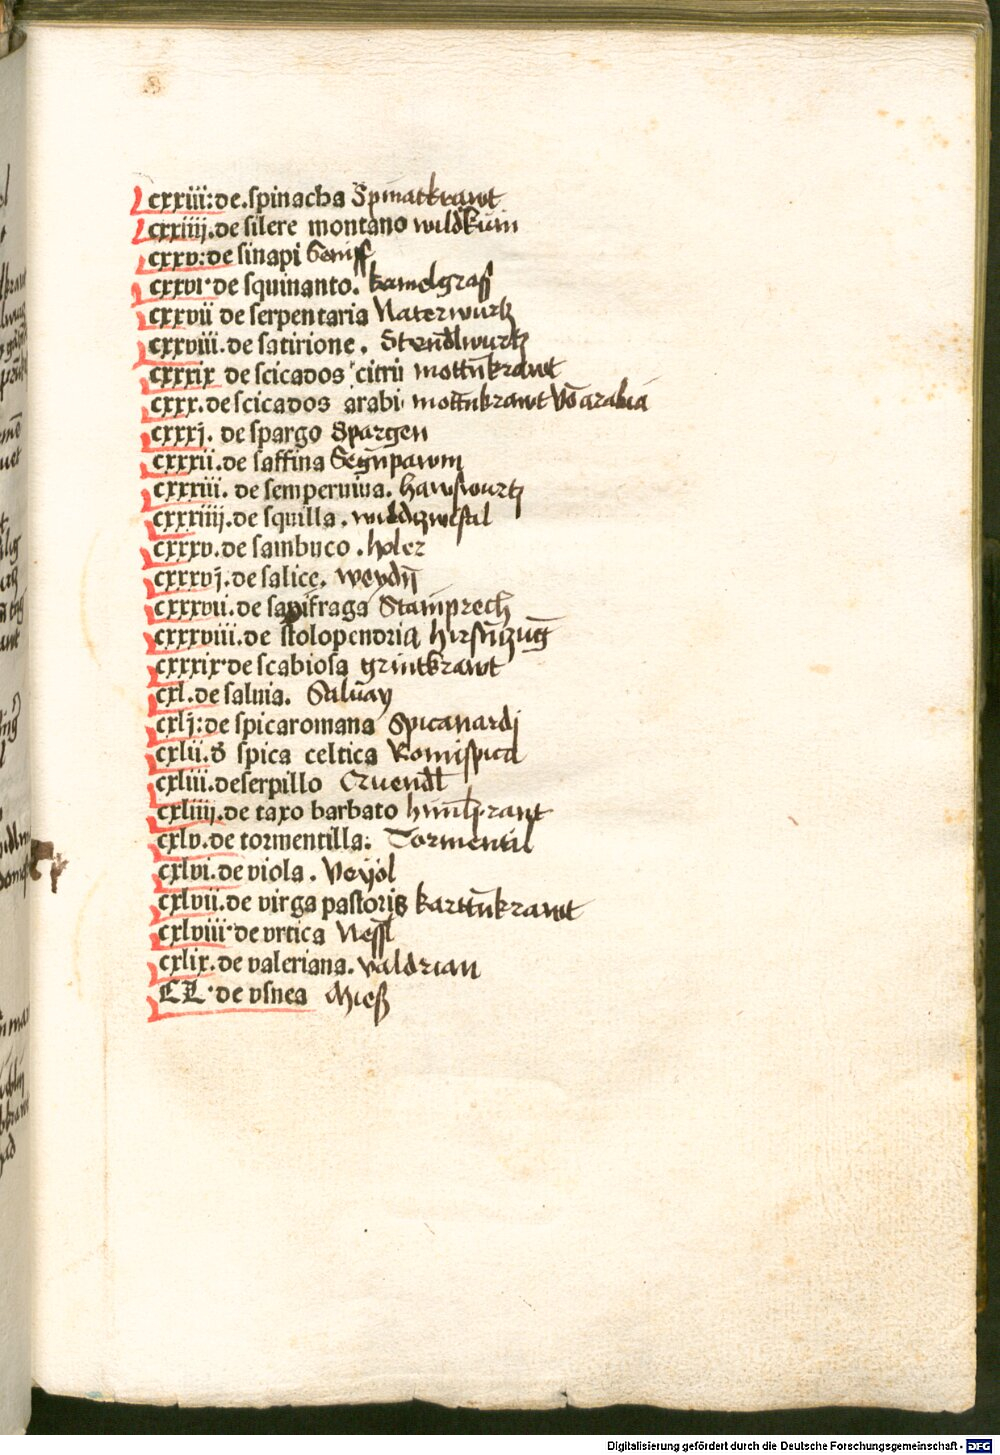 cxxiii: de .spinacha Spinatkrawt
cxxiiij. de silere montano wildkūm
cxxv: de sinapi Seniff
cxxvi· de squinanto. kamelgraß
cxxvii de serpentaria Naterwurtz
cxxviii. de satirione. Stendlwurtz
cxxxix de scicados citrij mottñkrawt
cxxx. de scicados arabi· mottñkrawt Vō arabia
cxxxj. de spargo Spargen
cxxxii. de saffina Segñpawm
cxxxiii. de semperuiua. hawswurtz
cxxxiiij. de squilla. wildzwifal
cxxxv. de sambuco. holer
cxxxvj. de salice. weydñ
cxxxvii. de saxifraga Stainprech
cxxxviii. de stolopendria hirsñzūg
cxxxix· de scabiosa grintkrawt
cxl. de saluia. Saluay
cxlj: de spicaromana Spicanardj
cxlii. d̄ spica celtica Romispica
cxliii. de serpillo Cruendl
cxliiij. de taxo barbato himlprant
cxlv. de tormentilla: Tormentil
cxlvi. de viola. Veyol
cxlvii. de virga pastoris kartñkrawt
cxlviii· de vrtica Nessl
cxlix. de valeriana. valdrian
CL· de vsnea Mieß
Digitalisierung gefördert durch die Deutsche Forschungsgemeinschaft - DFG